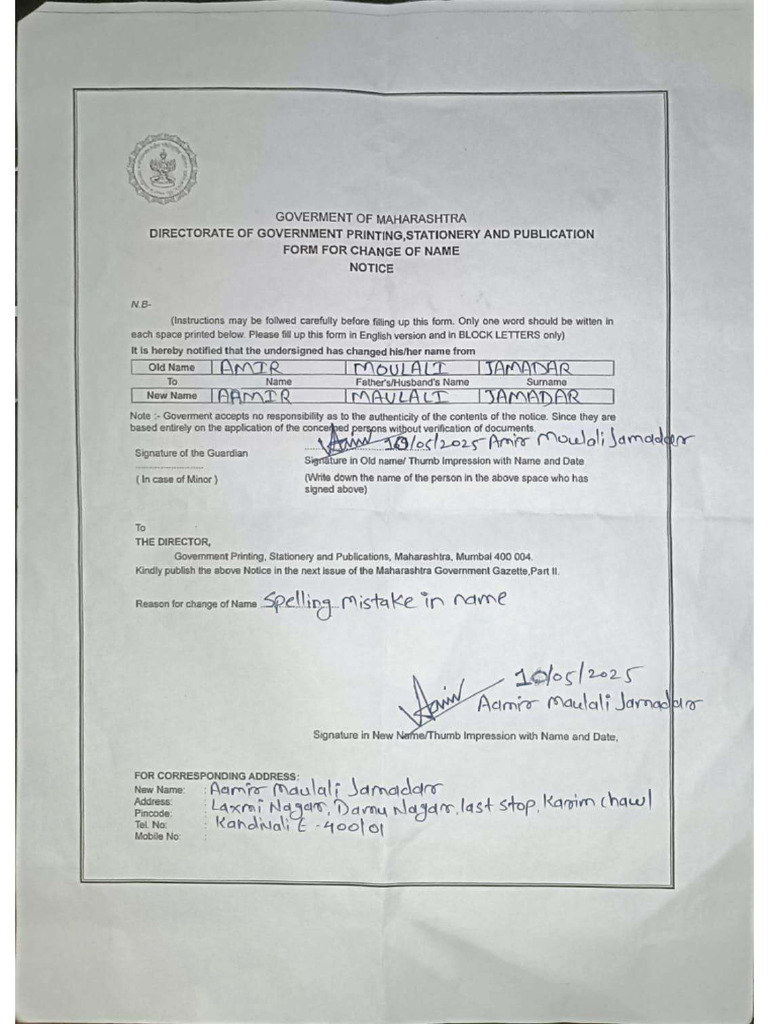 GOVERMENT OF MAHARASHTRA
DIRECTORATE OF GOVERNMENT PRINTING,STATIONERY AND PUBLICATION
FORM FOR CHANGE OF NAME
NOTICE
N.B-
(Instructions may be follwed carefully before filling up this form. Only one word should be witten in
each space printed below. Please fill up this form in English version and in BLOCK LETTERS only)
It is hereby notified that the undersigned has changed his/her name from
Old Name AMIR MOULALI JAMADAR
To Name Father's/Husband's Name Surname
New Name AAMIR MAULALI JAMADAR
Note :- Goverment accepts no responsibility as to the authenticity of the contents of the notice. Since they are
based entirely on the application of the concerned persons without verification of documents.
10/05/2025 Amir Moulali Jamadar
Signature of the Guardian
Signature in Old name/ Thumb Impression with Name and Date
( In case of Minor )
(Write down the name of the person in the above space who has
signed above)
To
THE DIRECTOR,
Government Printing, Stationery and Publications, Maharashtra, Mumbai 400 004.
Kindly publish the above Notice in the next issue of the Maharashtra Government Gazette,Part II.
Reason for change of Name Spelling mistake in name
10/05/2025
Aamir Maulali Jamadar
Signature in New Name/Thumb Impression with Name and Date,
FOR CORRESPONDING ADDRESS:
New Name: : Aamir Maulali Jamadar
Address: : Laxmi Nagar, Damu Nagar, last stop, Karim chawl
Pincode: :
Tel. No: : Kandivali E - 400101
Mobile No: :